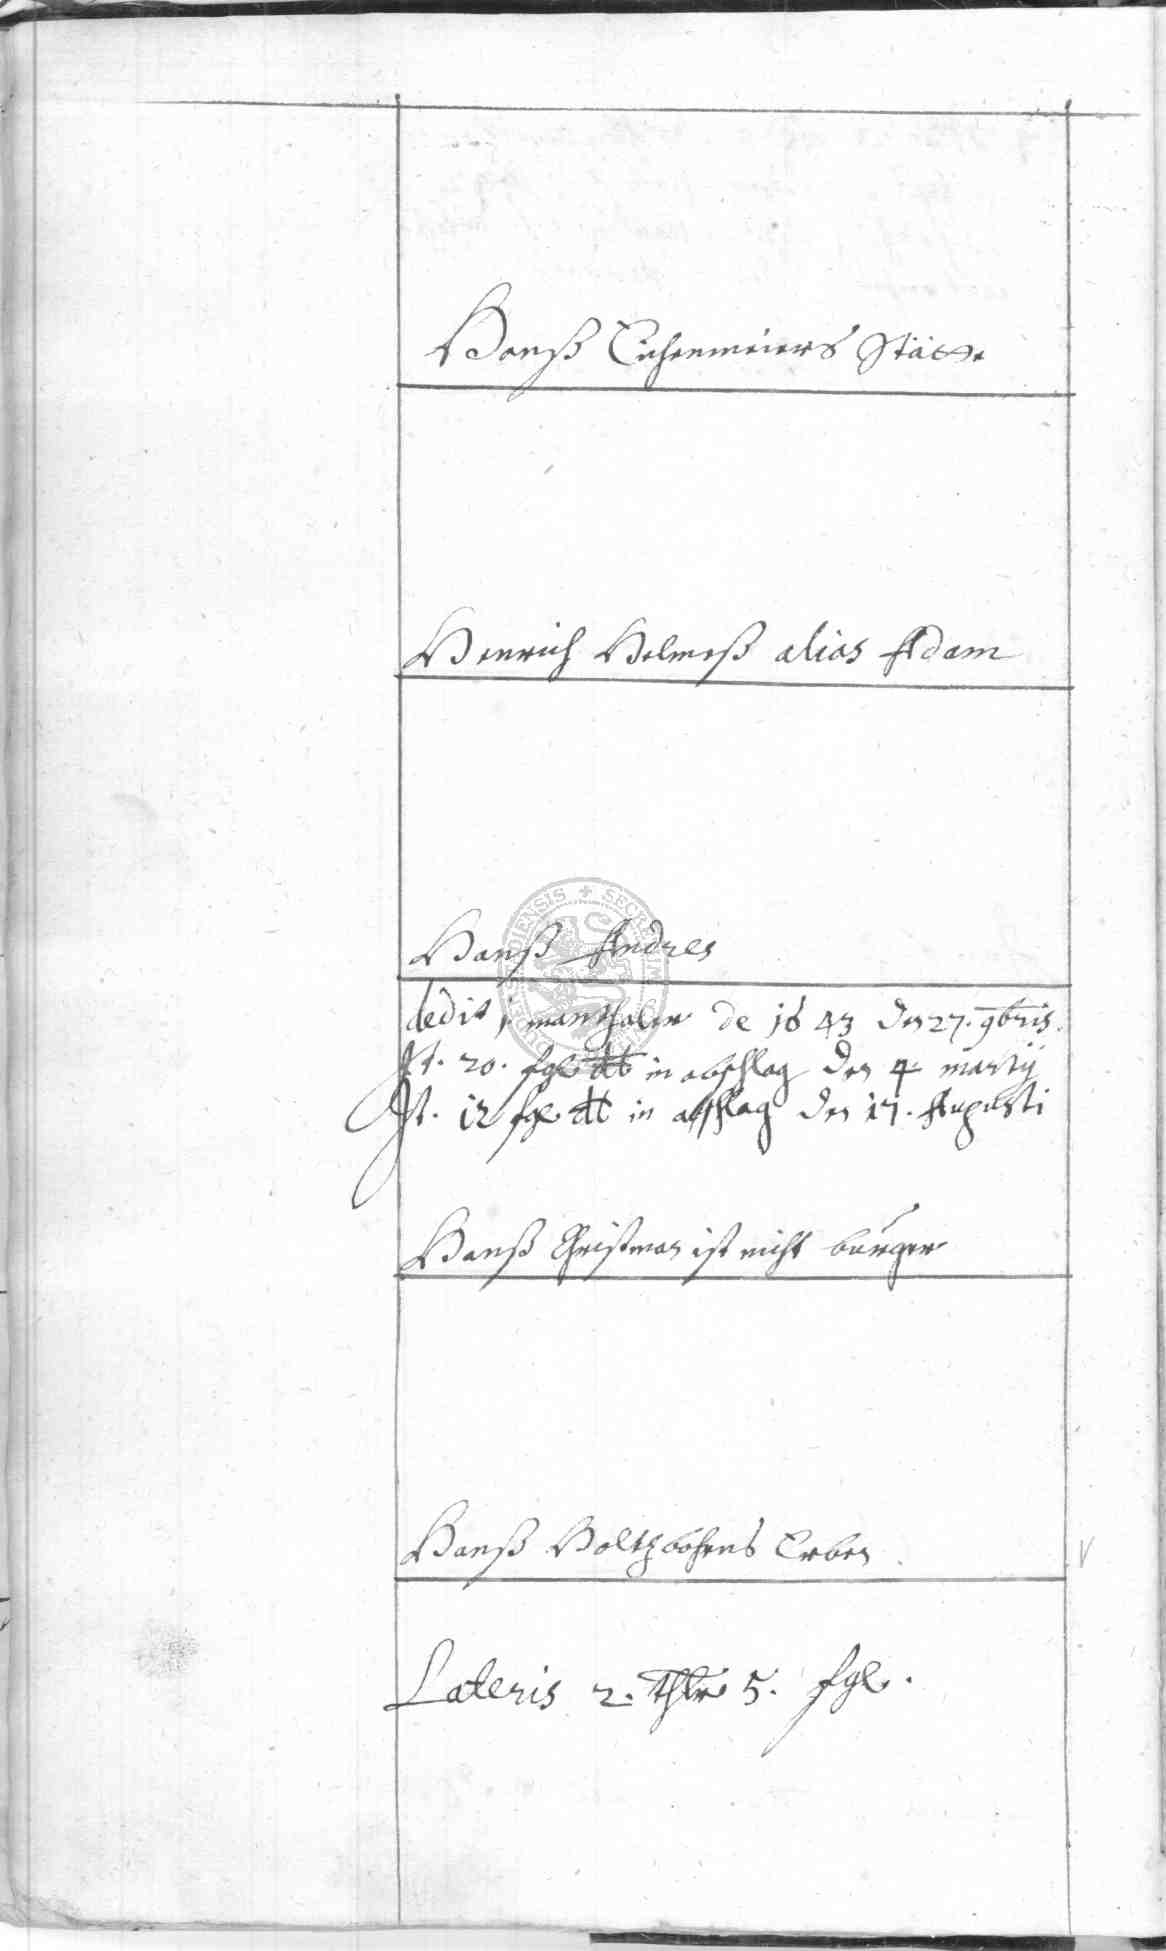 Hanß Eichenmeiers Stätte
Henrich Helmeß alias Adam
Hanß Andres
dedit j manthaler de 1643 den 27. 9bris.
It. 20. sgl. dt in abschlag den 4 martij
It. 12 sgl. dt in abschlag den 17. Augusti
Hanß Christman ist nicht burger
Hanß Holtzbohens Erben
Lateris 2. thlr 5. sgl.
SECRETUM